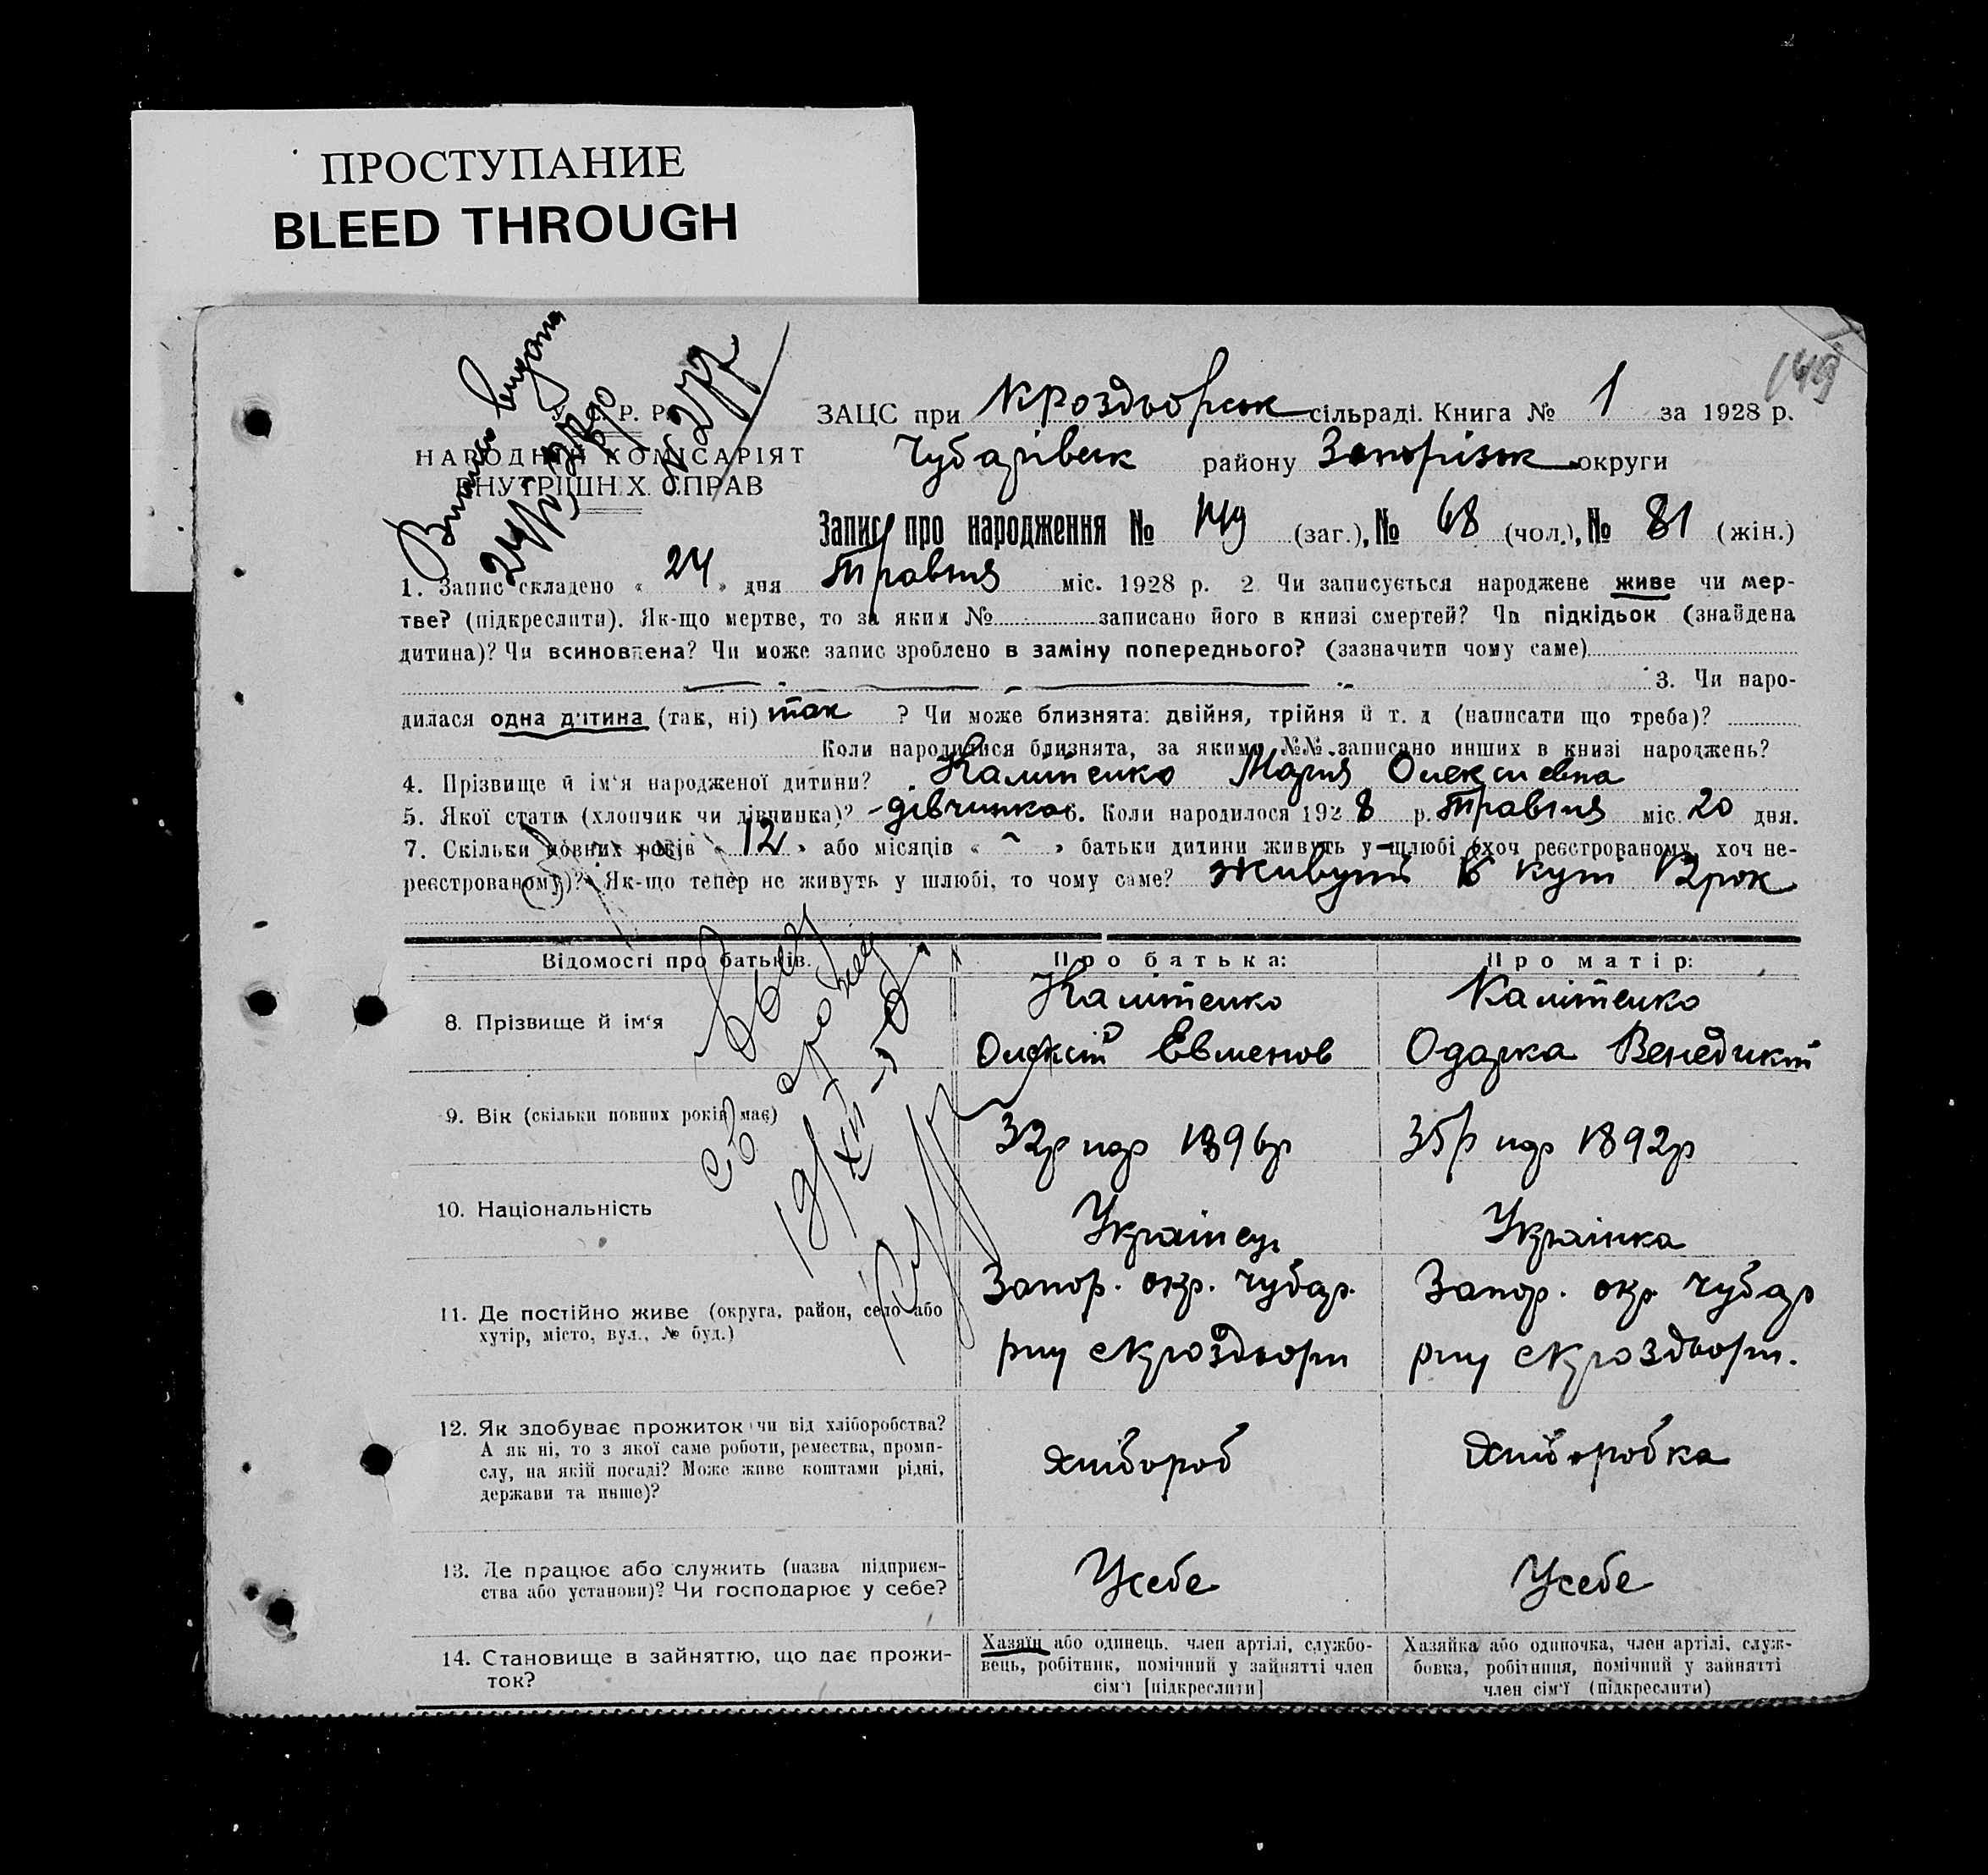 ПРОСТУПАНИЕ
BLEED THROUGH
149
У. С. Р. Р.
НАРОДНІЙ КОМІСАРІЯТ
ВНУТРІШНІХ СПРАВ
ЗАЦС при Кроздворськ сільраді. Книга № 1 за 1928 р.
Чубарівськ району Запорізьк округи
Запис про народження № 149 (заг.), № 68 (чол.), № 81 (жін.)
1. Запис складено « 24 » дня травня міс. 1928 р. 2 Чи записується народжене живе чи мер-
тве? (підкреслити). Як-що мертве, то за яким № записано його в книзі смертей? Чи підкідьок (знайдена
дитина)? Чи всиновлена? Чи може запис зроблено в заміну попереднього? (зазначити чому саме)
3. Чи наро-
дилася одна дитина (так, ні) так ? Чи може близнята: двійня, трійня й т. д (написати що треба)?
Коли народилися близнята, за якими №№ записано инших в книзі народжень?
4. Прізвище й ім'я народженої дитини? Калітенко Мария Олексиевна
5. Якої стати (хлопчик чи дівчинка)? дівчинка 6. Коли народилося 1928 р. травня міс. 20 дня.
7. Скільки повних років « 12 » або місяців « - » батьки дитини живуть у шлюбі (хоч реєстрованому, хоч не-
реєстрованому)? Як-що тепер не живуть у шлюбі, то чому саме? живуть в куп 12 рок
Відомості про батьків. Про батька: Про матір:
8. Прізвище й ім'я
Калітенко
Олексій Евменов
Калітенко
Одарка Венедикт
9. Вік (скільки повних років має)
32р нар 1896р
35р нар 1892р
10. Національність
Українец
Українка
11. Де постійно живе (округа, район, село або
хутір, місто, вул., № буд.)
Запор. окр. чубар.
рну с Кроздвори
Запор. окр. чубар
рну с Кроздвори.
12. Як здобуває прожиток чи від хліборобства?
А як ні, то з якої саме роботи, ремества, проми-
слу, на якій посаді? Може живе коштами рідні,
держави та инше)?
хлібороб
хліборобка
13. Де працює або служить (назва підприєм-
ства або установи)? Чи господарює у себе?
Усебе
Усебе
14. Становище в зайняттю, що дає прожи-
ток?
Хазяїн або одинець, член артілі, службо-
вець, робітник, помічний у зайнятті член
сім'ї [підкреслити]
Хазяйка або одиночка, член артілі, служ-
бовка, робітниця, помічний у зайнятті
член сім'ї (підкреслити)